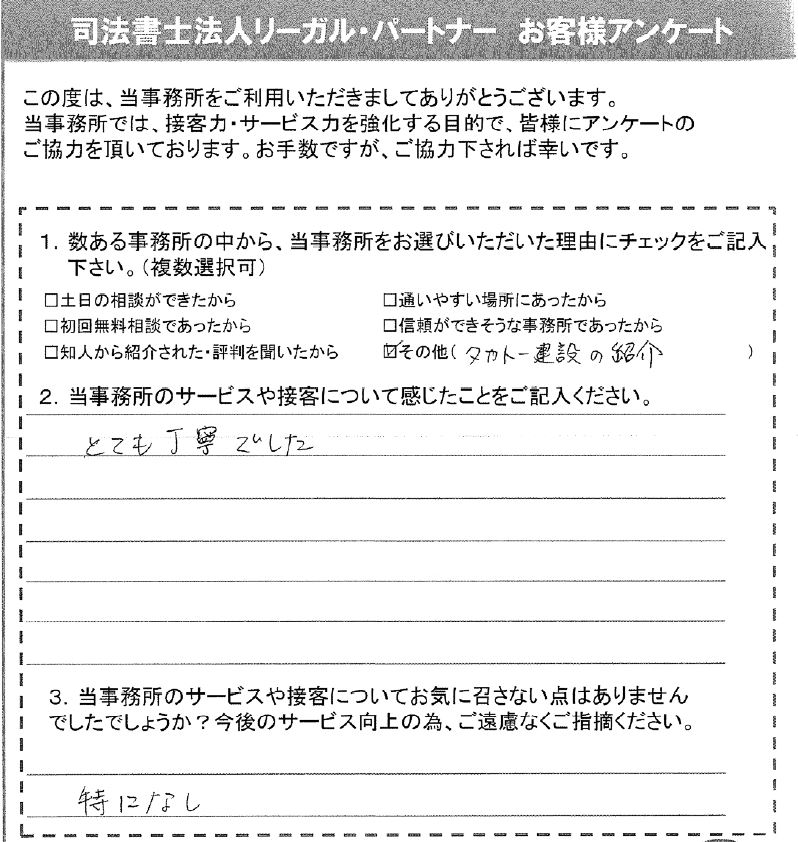 司法書士法人リーガル・パートナー お客様アンケート
この度は、当事務所をご利用いただきましてありがとうございます。
当事務所では、接客力・サービス力を強化する目的で、皆様にアンケートの
ご協力を頂いております。お手数ですが、ご協力下されば幸いです。
1. 数ある事務所の中から、当事務所をお選びいただいた理由にチェックをご記入
下さい。(複数選択可)
□土日の相談ができたから □通いやすい場所にあったから
□初回無料相談であったから □信頼ができそうな事務所であったから
□知人から紹介された・評判を聞いたから ☑その他( タカトー建設の紹介 )
2. 当事務所のサービスや接客について感じたことをご記入ください。
とても丁寧でした
3. 当事務所のサービスや接客についてお気に召さない点はありません
でしたでしょうか?今後のサービス向上の為、ご遠慮なくご指摘ください。
特になし